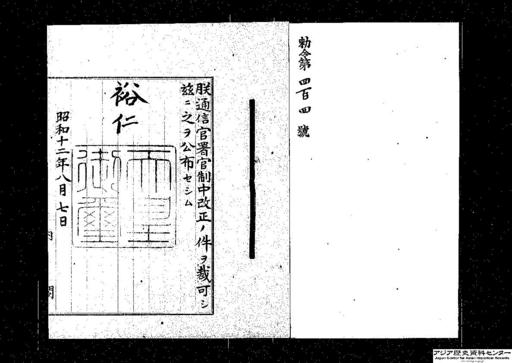 勅令第四百四號
朕通信官署官制中改正ノ件ヲ裁可シ
茲ニ之ヲ公布セシム
裕仁
天皇
御璽
昭和十二年八月七日
内閣
アジア歴史資料センター
Japan Center for Asian Historical Records